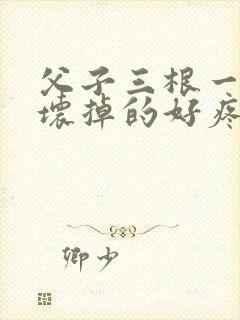 父子三根一
壞掉的好疼
卿少